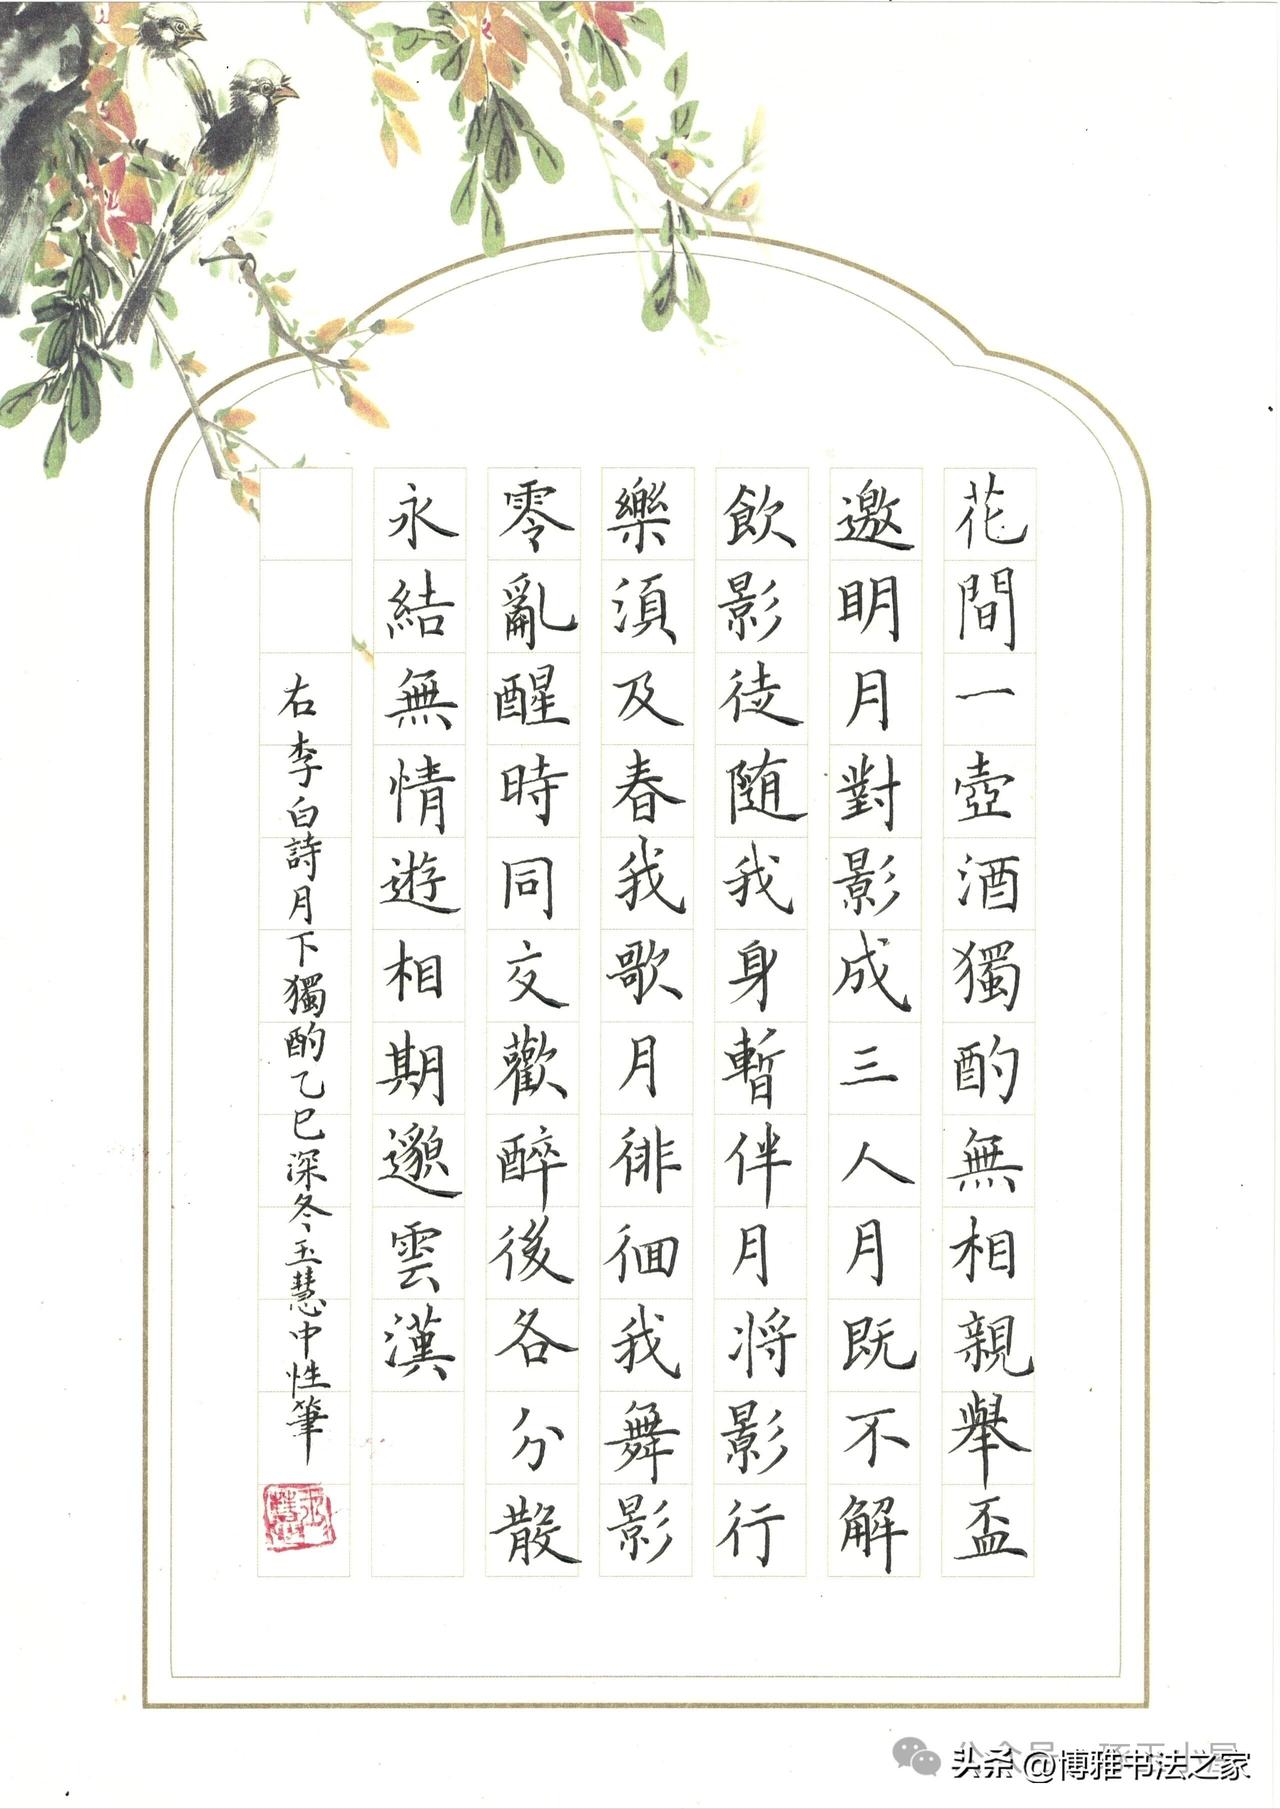 花間一壺酒獨酌無相親舉盃
邀明月對影成三人月既不解
飲影徒随我身暫伴月将影行
樂須及春我歌月徘徊我舞影
零亂醒時同交歡醉後各分散
永結無情遊相期邈雲漢
右李白詩月下獨酌乙巳深冬玉慧中性筆
头条@博雅书法之家